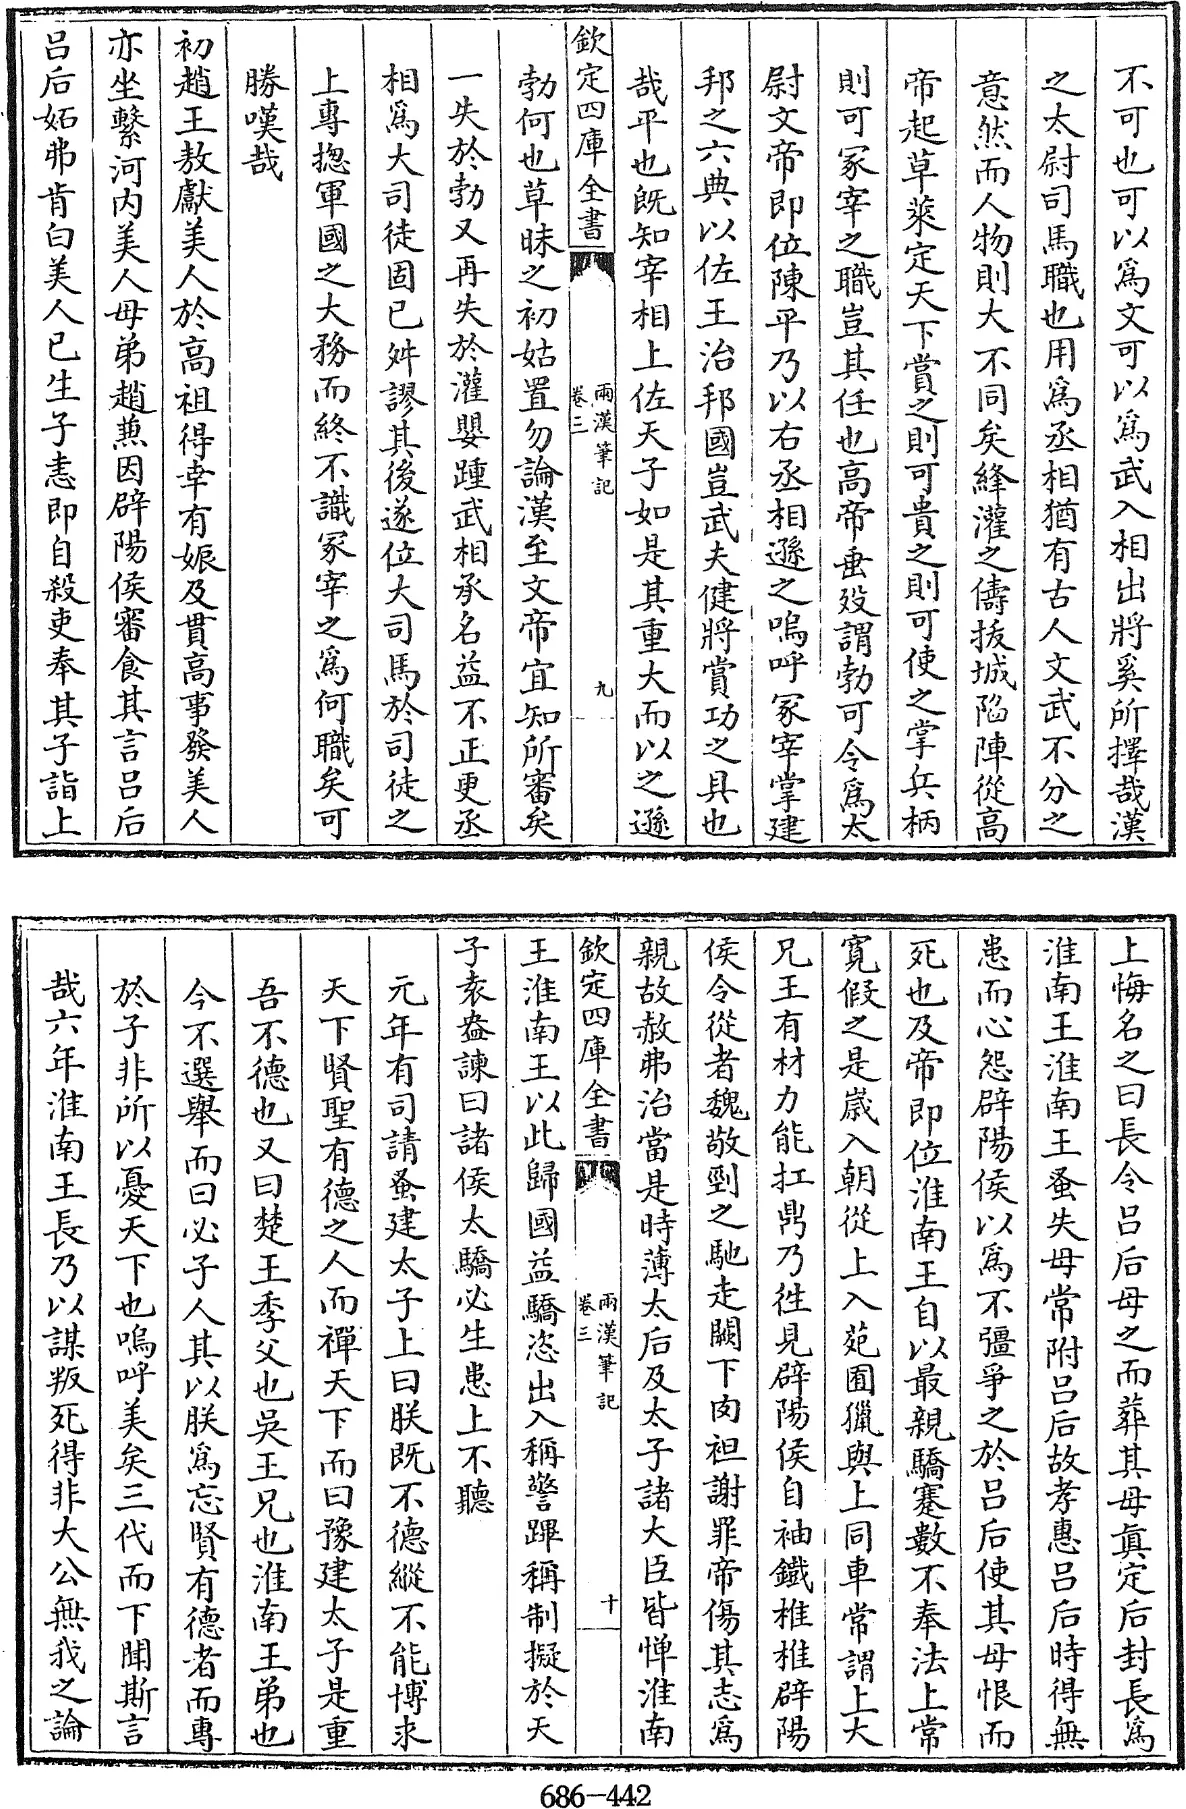 不可也可以為文可以為武入相出將奚所擇哉漢
之太尉司馬職也用為丞相猶有古人文武不分之
意然而人物則大不同矣絳灌之儔拔城陷陣從高
帝起草萊定天下賞之則可貴之則可使之掌兵柄
則可冢宰之職豈其任也高帝垂歿謂勃可令為太
尉文帝即位陳平乃以右丞相遜之嗚呼冢宰掌建
邦之六典以佐王治邦國豈武夫健將賞功之具也
哉平也既知宰相上佐天子如是其重大而以之遜
欽定四庫全書
兩漢筆記
卷三
九
勃何也草昧之初姑置勿論漢至文帝宜知所審矣
一失於勃又再失於灌嬰踵武相承名益不正更丞
相為大司徒固已舛謬其後遂位大司馬於司徒之
上專揔軍國之大務而終不識冢宰之為何職矣可
勝嘆哉
初趙王敖獻美人於高祖得幸有娠及貫高事發美人
亦坐繫河内美人母弟趙兼因辟陽侯審食其言吕后
吕后妬弗肯白美人已生子恚即自殺吏奉其子詣上
上悔名之曰長令吕后母之而葬其母真定后封長為
淮南王淮南王蚤失母常附吕后故孝惠吕后時得無
患而心怨辟陽侯以為不彊爭之於吕后使其母恨而
死也及帝即位淮南王自以最親驕蹇數不奉法上常
寛假之是嵗入朝從上入苑囿獵與上同車常謂上大
兄王有材力能扛鼎乃徃見辟陽侯自袖鐵椎椎辟陽
侯令從者魏敬剄之馳走闕下肉袒謝罪帝傷其志為
親故赦弗治當是時薄太后及太子諸大臣皆憚淮南
欽定四庫全書
兩漢筆記
卷三
十
王淮南王以此歸國益驕恣出入稱警蹕稱制擬於天
子袁盎諫曰諸侯太驕必生患上不聽
元年有司請蚤建太子上曰朕既不德縱不能博求
天下賢聖有德之人而禪天下而曰豫建太子是重
吾不德也又曰楚王季父也吳王兄也淮南王弟也
今不選舉而曰必子人其以朕為忘賢有德者而專
於子非所以憂天下也嗚呼美矣三代而下聞斯言
哉六年淮南王長乃以謀叛死得非大公無我之論
686-442